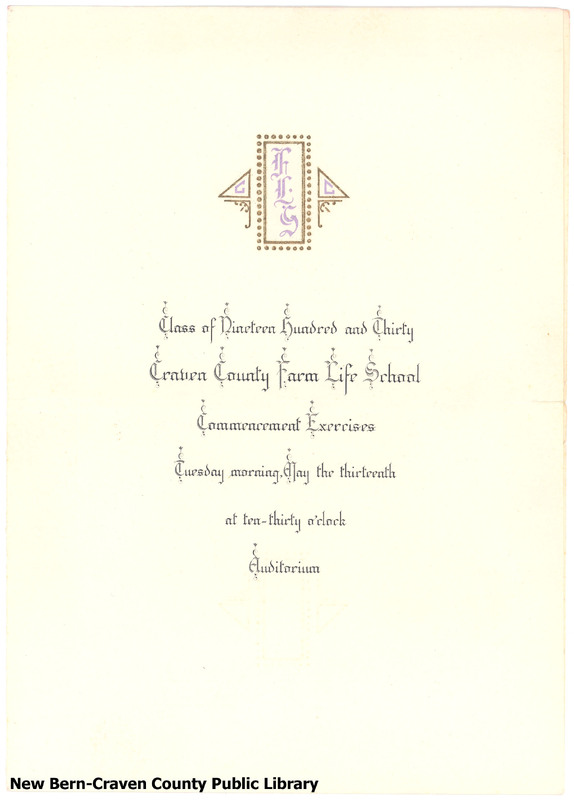 C
F
L
S
C
Class of Nineteen Hundred and Thirty
Craven County Farm Life School
Commencement Exercises
Tuesday morning, May the thirteenth
at ten-thirty o'clock
Auditorium
New Bern-Craven County Public Library